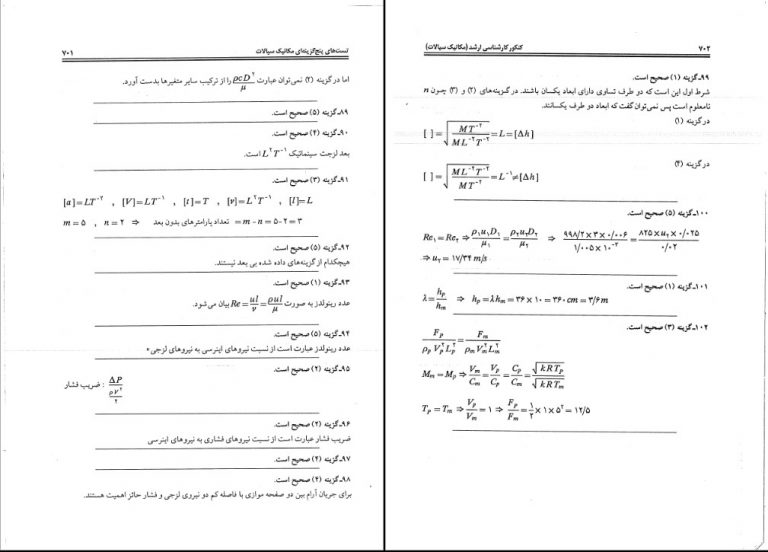 تست‌های پنج‌گزینه‌ای مکانیک سیالات ۷۰۱
اما در گزینه (۲) نمی‌توان عبارت ρcD²/μ را از ترکیب سایر متغیرها بدست آورد.
۸۹ـ گزینه (۵) صحیح است.
۹۰ـ گزینه (۴) صحیح است.
بعد لزجت سینماتیک L²T⁻¹ است.
۹۱ـ گزینه (۳) صحیح است.
[a]=LT⁻² , [V]=LT⁻¹ , [t]=T , [ν]=L²T⁻¹ , [l]=L
m=۵ , n=۲ ⇒ تعداد پارامترهای بدون بعد =m-n=۵-۲=۳
۹۲ـ گزینه (۵) صحیح است.
هیچکدام از گزینه‌های داده شده بی بعد نیستند.
۹۳ـ گزینه (۱) صحیح است.
عدد رینولدز به صورت Re=ul/ν=ρul/μ بیان می‌شود.
۹۴ـ گزینه (۵) صحیح است.
عدد رینولدز عبارت است از نسبت نیروهای اینرسی به نیروهای لزجی.
۹۵ـ گزینه (۲) صحیح است.
ΔP/(ρV²/۲) : ضریب فشار
۹۶ـ گزینه (۲) صحیح است.
ضریب فشار عبارت است از نسبت نیروهای فشاری به نیروهای اینرسی
۹۷ـ گزینه (۲) صحیح است.
۹۸ـ گزینه (۴) صحیح است.
برای جریان آرام بین دو صفحه موازی با فاصله کم دو نیروی لزجی و فشار حائز اهمیت هستند.
۷۰۲ کنکور کارشناسی ارشد (مکانیک سیالات)
۹۹ـ گزینه (۱) صحیح است.
شرط اول این است که دو طرف تساوی دارای ابعاد یکسان باشند. در گزینه‌های (۲) و (۳) چون n
نامعلوم است پس نمی‌توان گفت که ابعاد دو طرف یکسانند.
در گزینه (۱)
[ ]=√(MT⁻²/ML⁻²T⁻²)=L=[Δh]
در گزینه (۴)
[ ]=√(ML⁻²T⁻²/MT⁻²)=L⁻¹≠[Δh]
۱۰۰ـ گزینه (۵) صحیح است.
Re₁=Re₂ ⇒ ρ₁u₁D₁/μ₁=ρ₂u₂D₂/μ₂ ⇒ ۹۹۸/۲×۳×۰/۰۰۶/۱/۰۰۵×۱۰⁻³=۸۲۵×u₂×۰/۰۲۵/۰/۰۲
⇒ u₂=۱۷/۳۴ m/s
۱۰۱ـ گزینه (۱) صحیح است.
λ=hp/hm ⇒ hp=λhm=۳۶×۱۰=۳۶۰cm=۳/۶m
۱۰۲ـ گزینه (۳) صحیح است.
Fp/ρpVp²Lp²=Fm/ρmVm²Lm²
Mm=Mp ⇒ Vm/Cm=Vp/Cp=Cp/Cm=√kRTp/√kRTm
Tp=Tm ⇒ Vp/Vm=۱ ⇒ Fp/Fm=۱/۲×۱×۵²=۱۲/۵